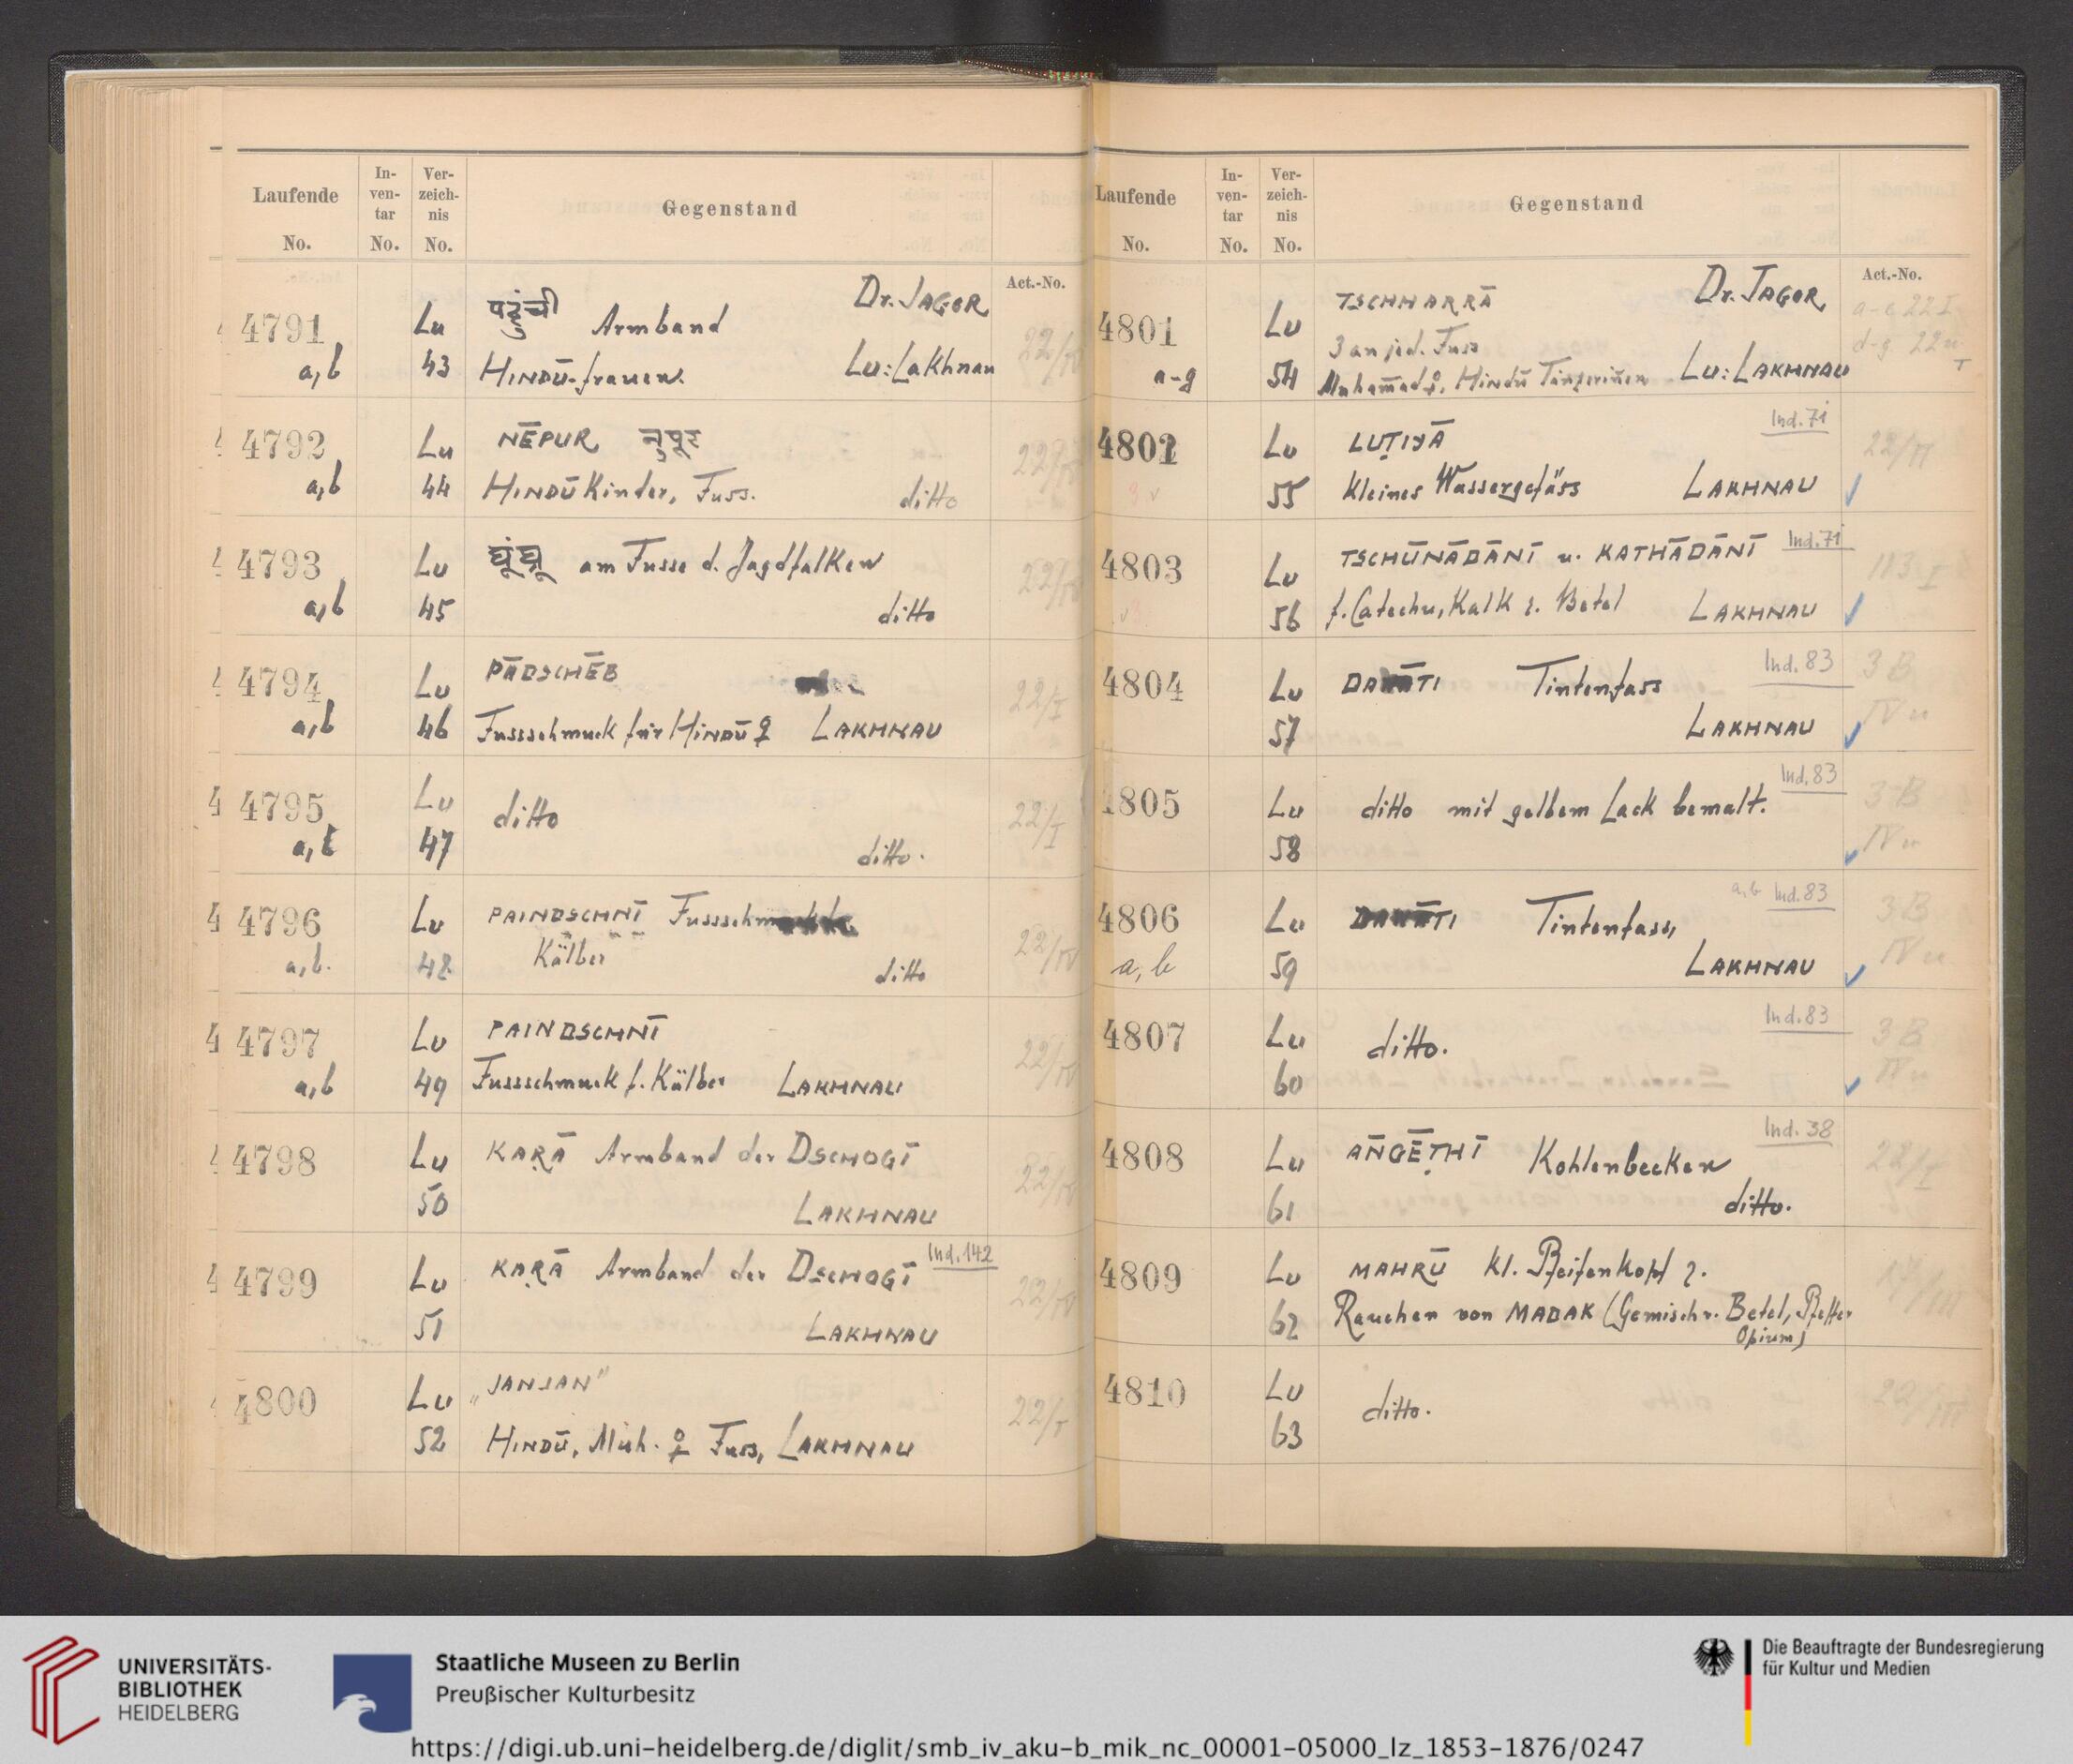 Laufende No.
In-ven-tar No.
Ver-zeich-nis No.
Gegenstand
Act.-No.
4791 Lu पहुंची Armband Dr. JAGOR
a,b 43 HINDŪ-frauen. Lu: LaKhnau 22/IV
4792 Lu NĒPUR नुपूर
a,b 44 HINDŪ Kinder, Fuss. ditto
4793 Lu घूंघू am Fusse d. Jagdfalken
a,b 45 ditto
4794 Lu PĀDSCHĒB
a,b 46 Fussschmuck für HINDŪ ♀ LAKHNAU 22/I
4795 Lu ditto 22/I
a,b 47 ditto.
4796 Lu PAINDSCHNĪ
Kälber
a,b. 48 ditto 22/IV
4797 Lu PAINDSCHNĪ
a,b 49 Fussschmuck f. Kälber LAKHNAU 22/IV
4798 Lu KAṚĀ Armband der DSCHOGĪ
50 LAKHNAU 22/IV
4799 Lu KAṚĀ Armband der DSCHOGĪ Ind. 142
51 LAKHNAU 22/IV
4800 Lu „JANJAN"
52 HINDŪ, Muh. ♀ Fuss, LAKHNAU 22/I
Laufende No.
In-ven-tar No.
Ver-zeich-nis No.
Gegenstand
Act.-No.
4801 Lu TSCHHARRĀ Dr. JAGOR a-c 22 I
3 an jed. Fuss d-g 22
a-g 54 Muhammad ♀, HINDŪ Tänzerinen Lu: LAKHNAU
4802 Lu LUṬIJĀ Ind. 71 22/VI
55 kleines Wassergefäss LAKHNAU
4803 Lu TSCHŪNĀDĀNĪ u. KATHĀDĀNĪ Ind. 71 113 I
56 f. Catechu, Kalk z. Betel LAKHNAU
4804 Lu DAWĀTI Tintenfass Ind. 83 3 B
57 LAKHNAU IV u
4805 Lu ditto mit gelbem Lack bemalt. Ind. 83 3 B
58 IV u
4806 Lu DAWĀTI Tintenfass, a,b Ind. 83 3 B
a, b 59 LAKHNAU IV u
4807 Lu ditto. Ind. 83 3 B
60 IV u
4808 Lu AṄGĒṬHĪ Kohlenbecken Ind. 38 22/I
61 ditto.
4809 Lu MAHRŪ Kl. Pfeifenkopf z.
62 Rauchen von MADAK (Gemisch v. Betel, Pfeffer
Opium)
4810 Lu ditto.
63
UNIVERSITÄTS-
BIBLIOTHEK
HEIDELBERG
Staatliche Museen zu Berlin
Preußischer Kulturbesitz
Die Beauftragte der Bundesregierung
für Kultur und Medien
https://digi.ub.uni-heidelberg.de/diglit/smb_iv_aku-b_mik_nc_00001-05000_lz_1853-1876/0247